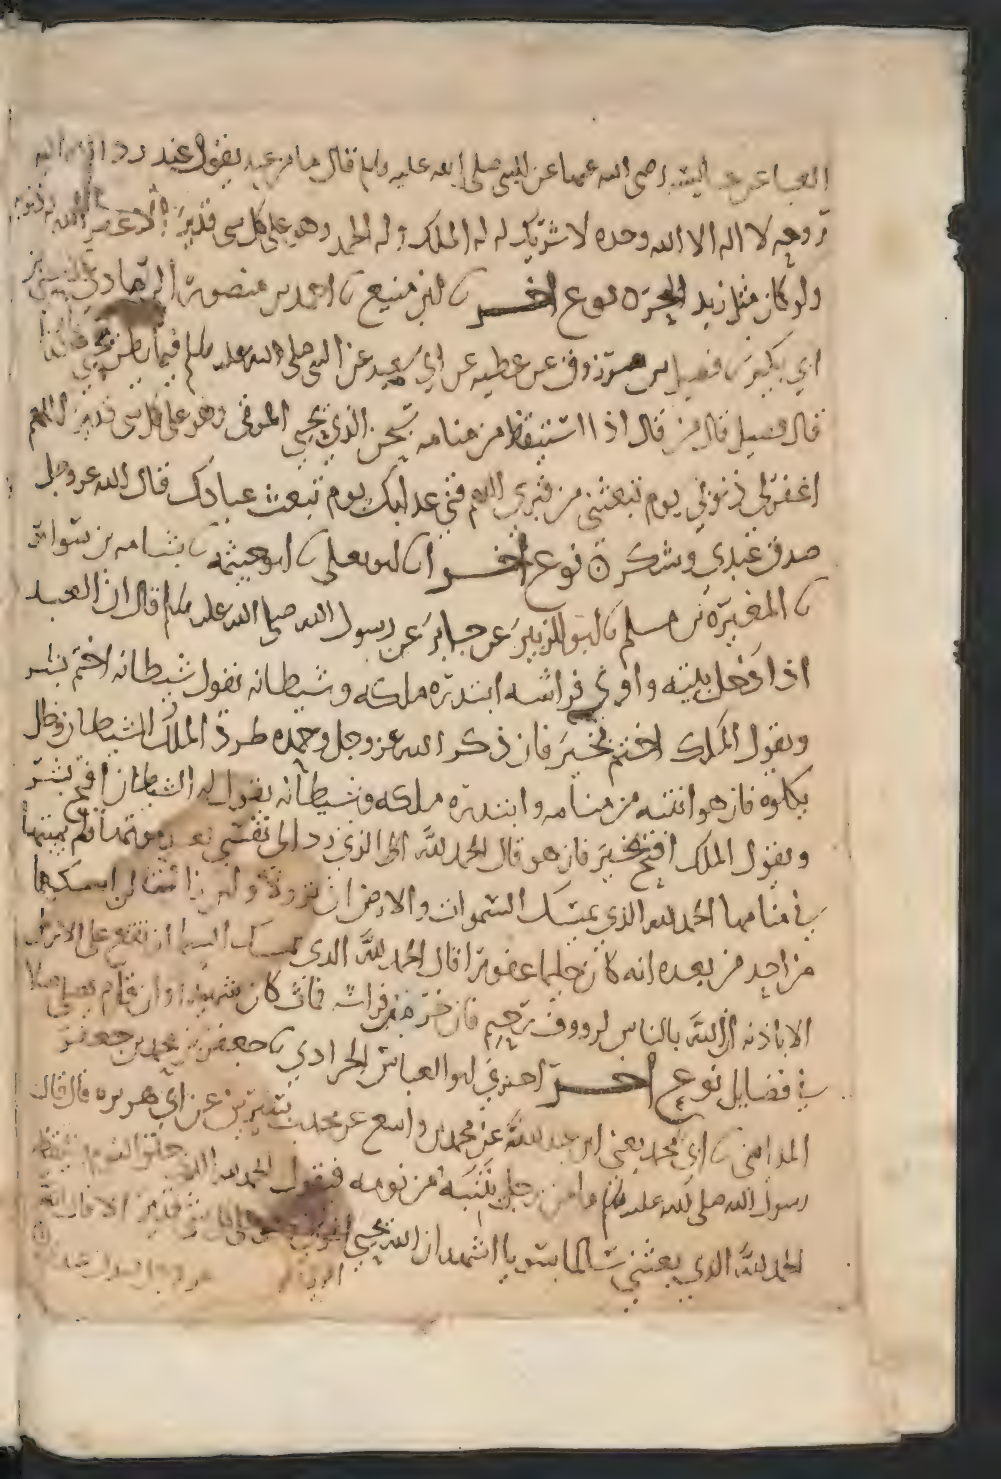 عن عائشة رضى الله عنها عن النبي صلى الله عليه وسلم قال ما من عبد يقول عند رد الله اليه
روحه لا اله الا الله وحده لا شريك له له الملك وله الحمد وهو على كل شي قدير الا غفر الله له ذنوبه
ولو كان مثل زبد البحر نوع اخر ابن منيع احمد بن منصور الرمادي
فضيل بن مرزوق عن عطيه عن ابي سعيد عن النبي صلى الله عليه وسلم فيما
قال فضيل قال من قال اذا استيقظ من منامه سبحن الذي يحيي الموتى وهو على كل شي قدير اللهم
اغفر لي ذنوبي يوم تبعثني من قبري اللهم قني عذابك يوم تبعث عبادك قال الله عز وجل
صدق عبدي وشكر نوع اخر ابو يعلى ابو خيثمة شبابه بن سوار
المغيرة بن مسلم ابو الزبير عن جابر عن رسول الله صلى الله عليه وسلم قال ان العبد
اذا دخل بيته واوى فراشه ابتدره ملكه وشيطانه يقول شيطانه اختم بشر
ويقول الملك اختم بخير فان ذكر الله عز وجل وحمده طرد الملك الشيطان وظل
يكلوه فان هو انتبه من منامه وابتدره ملكه وشيطانه يقول له الشيطان افتح بشر
ويقول الملك افتح بخير فان هو قال الحمد لله الذي رد الى نفسي بعد موتها ولم يمتها
في منامها الحمد لله الذي يمسك السموات والارض ان تزولا ولئن زالتا ان امسكهما
من احد من بعده انه كان حليما غفورا قال الحمد لله الذي يمسك السما ان تقع على الارض
الا باذنه ان الله بالناس لرووف رحيم فان خر من فراشه فمات كان شهيدا وان قام يصلي صلا
في فضايل نوع اخر اخبرني ابو العباس الجرادي جعفر بن محمد بن جعفر
المدايني ابي محمد يعني ابن عبد الله عن محمد بن واسع عن محمد بن سيرين عن ابي هريره قال قال
رسول الله صلى الله عليه وسلم ما من رجل ينتبه من نومه فيقول الحمد لله الذي خلق النوم واليقظه
الحمد لله الذي بعثني سالما سويا اشهد ان الله يحيي الموتى وهو على كل شي قدير الا قال الله